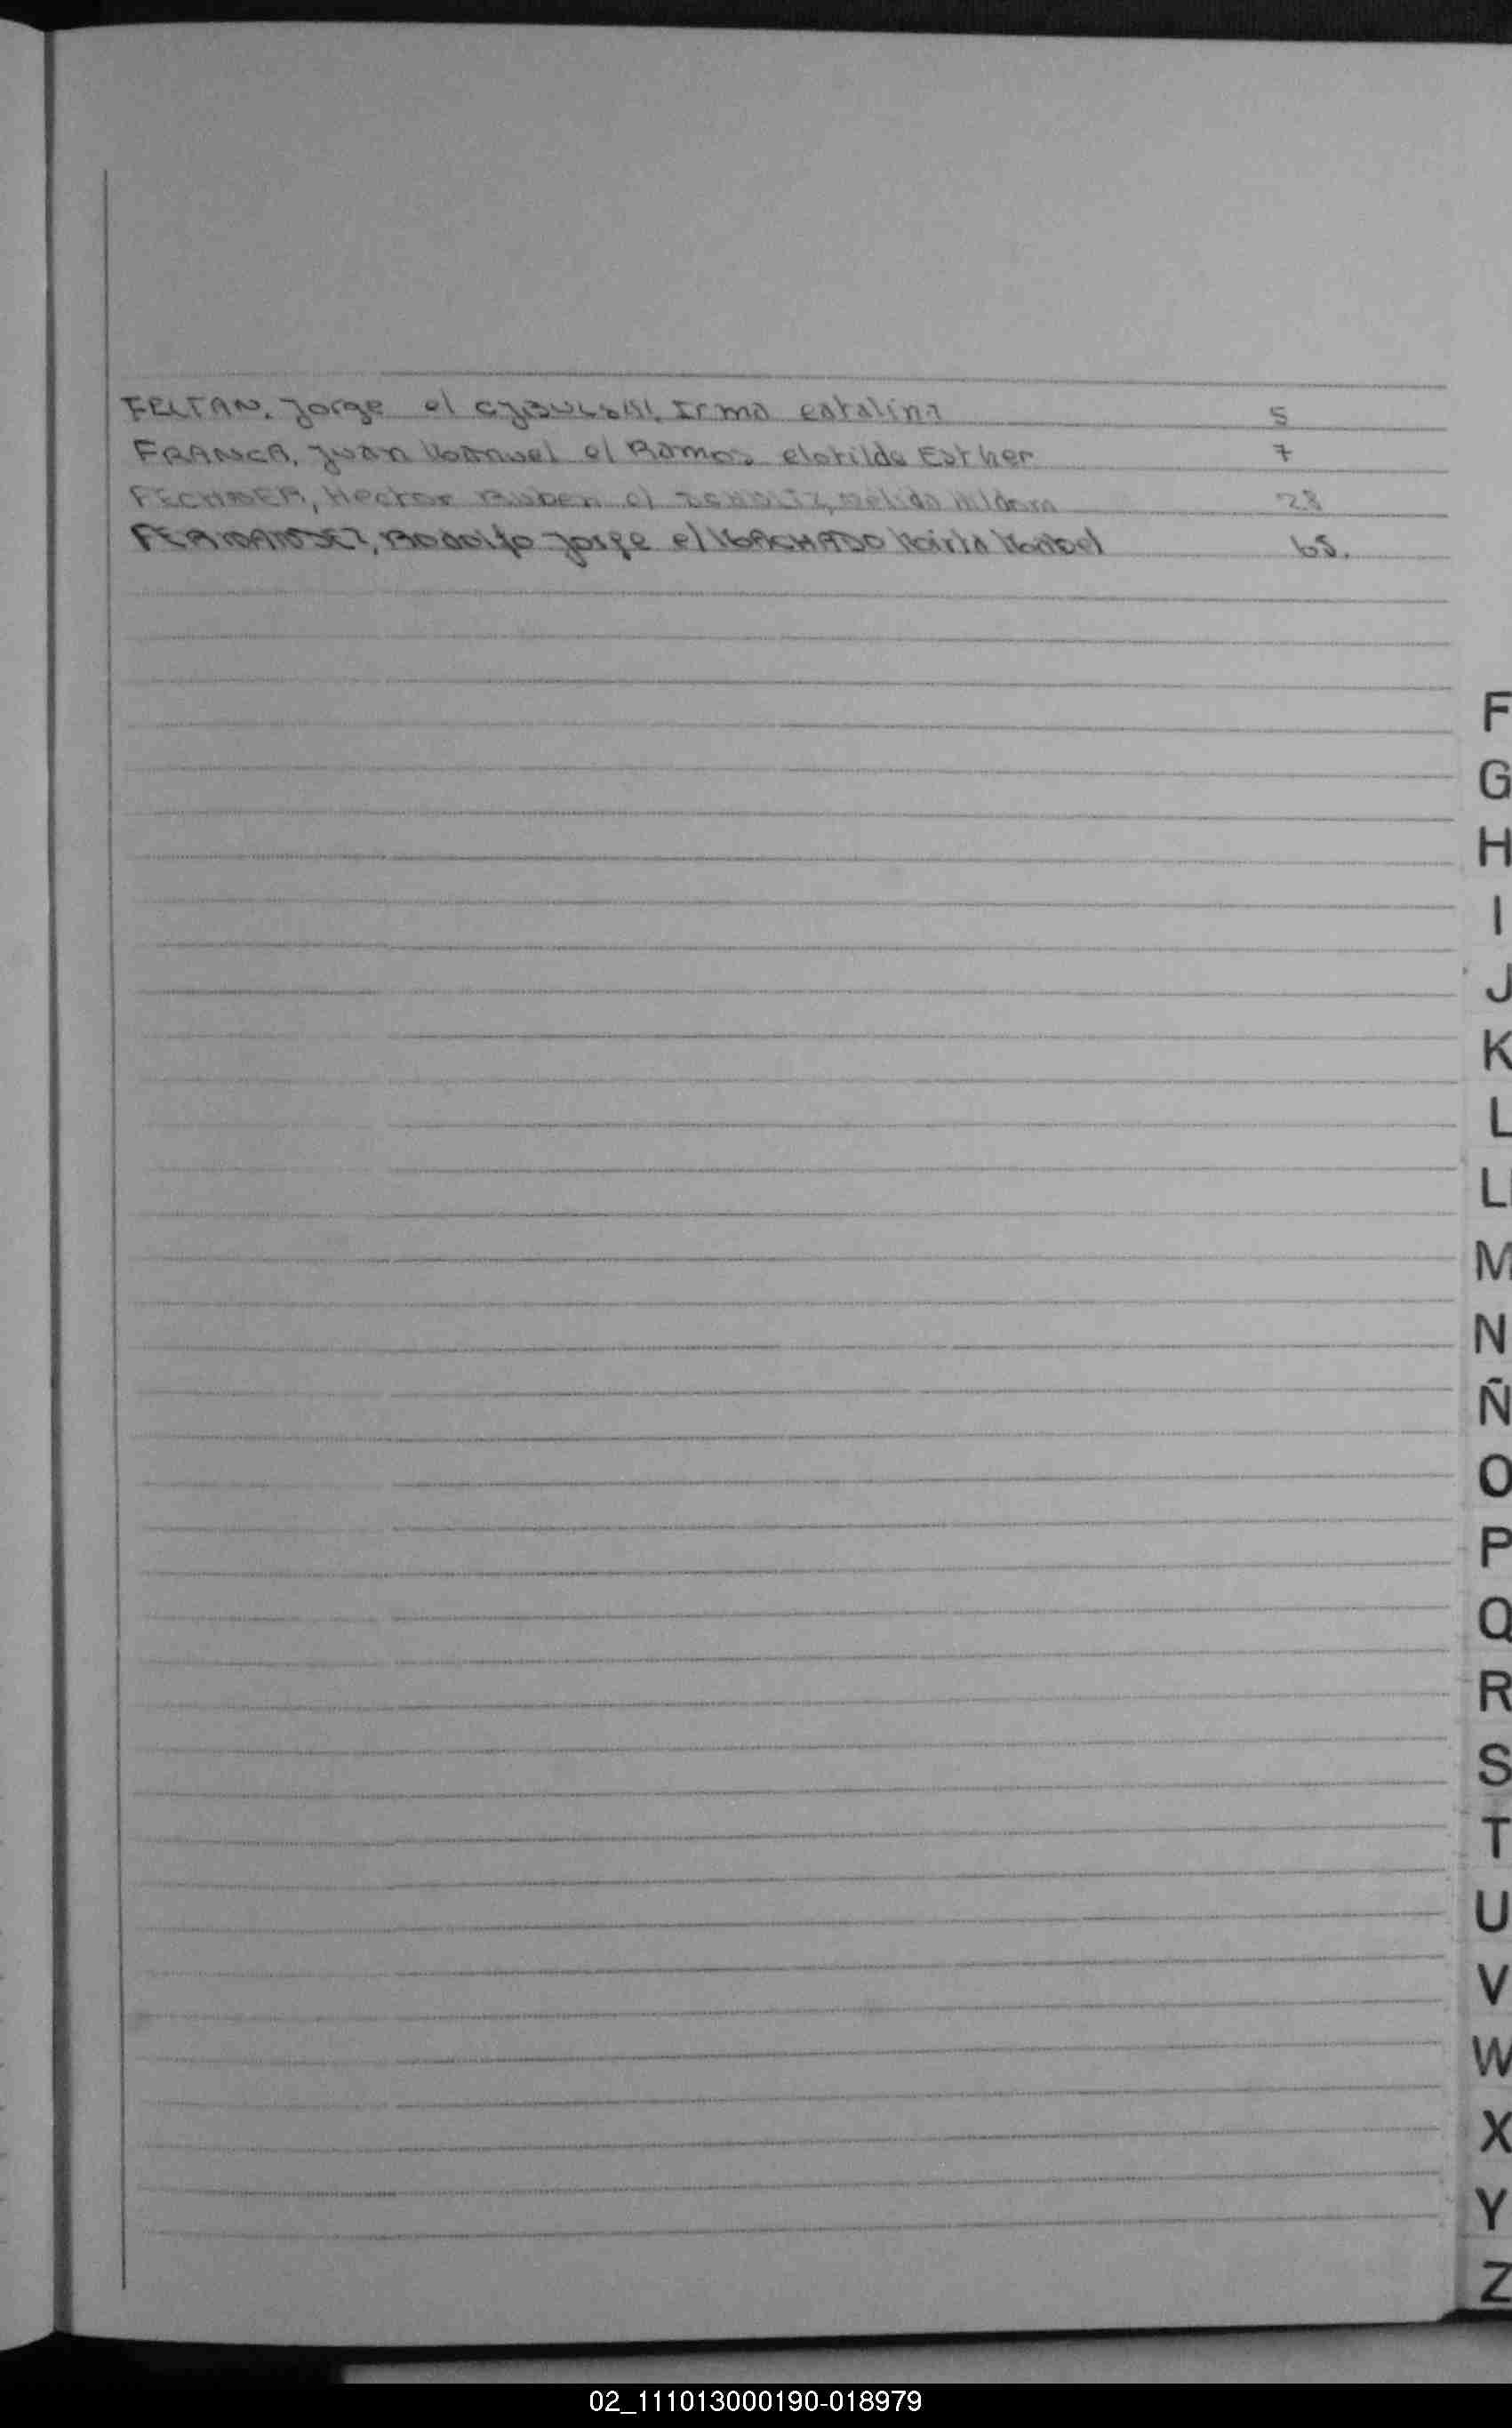 FELTAN, Jorge c/ CYBULSKI, Irma Catalina 5
FRANCA, Juan Manuel c/ Ramos Clotilde Esther 7
FECHNER, Hector Ruben c/ Nelida 28
FERNANDEZ, Rodolfo Jorge c/ MACHADO Mirta Mabel 65.
F
G
H
I
J
K
L
Ll
M
N
Ñ
O
P
Q
R
S
T
U
V
W
X
Y
Z
02_111013000190-018979